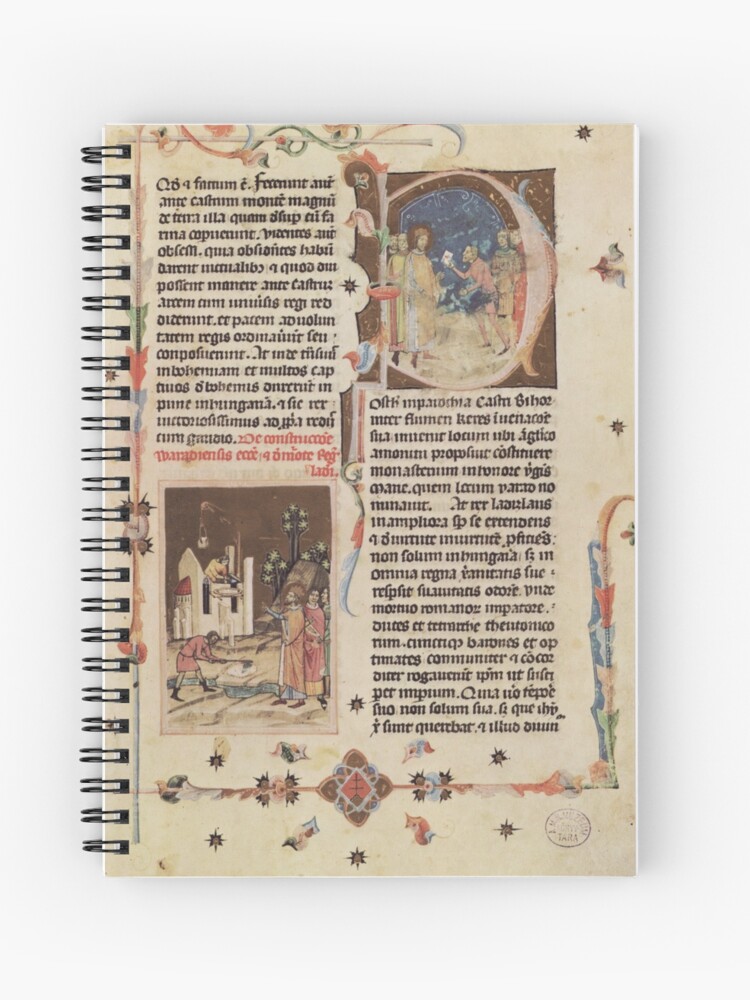 Qđ ⁊ factum ē. Fecerunt autē
ante castrum montē magnū
de terra illa quam dsup eū fa
rina copuerunt. Videntes aut
obsessi. quia obsidentes habūd
darent uictualibȝ ⁊ quod diu
possent manere ante castrum
arcem cum uniuersis regi red
diderunt. et pacem ad volun
tatem regis ordinauīt seu
conposuerunt. At inde reūsus
in bohemiam et multos cap
tiuos d bohemis duxerūt in
pune in hungariā. ⁊ sic rex
uictoriosissimus ad ꝓpa rediit
cum gaudio. De construccōe
waradiensis eccē; ⁊ d mōte Regꝭ
ladi.
Osth in parochia Castri Bihor
inter flumen Keres ī uenacōe
sua inuenit locum ubi āglico
amonitu proposuit cōstituere
monasterium in honore ỽginis
Marie. quem locum varad no
minauit. At rex ladizlaus
in ampliora sp se extendens
⁊ d uirtute in uirtutē ꝓficiēs
non solum in hungaīa ꝫ in
omnia regna xp̄ianitatis sue
respsit suauitatis odorē. Unde
mortuo romanor impatore.
duces et tetrarche theutonico
rum. cunctiqȝ barones et op
timates communiter ⁊ cōcor
diter rogauerūt ip̄m ut susci
pet impium. Qui ūo tēpore
suo non solum sua. ꝫ que ihū
xp̄i sunt querebat. ⁊ illud diuin